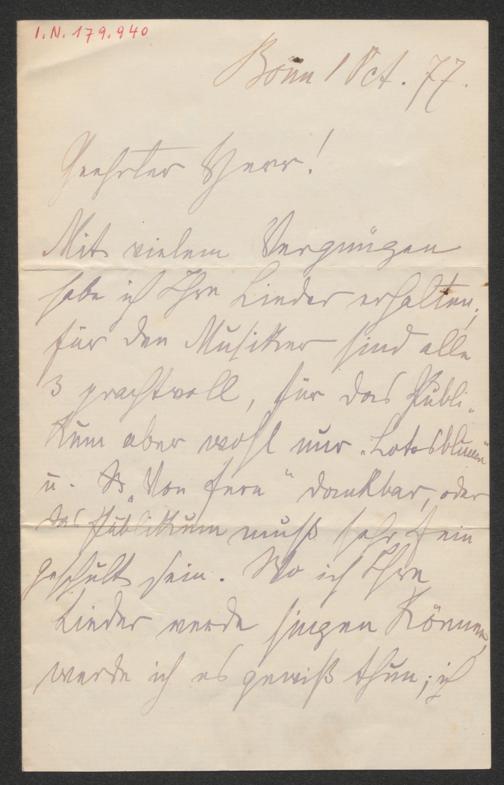 I.N. 179.940
Bonn 1 Oct. 77.
Geehrter Herr!
Mit vielem Vergnügen
habe ich Ihre Lieder erhalten;
für den Musiker sind alle
3 prachtvoll, für das Publi-
kum aber wohl nur „Lotosblume"
u. „Von fern" dankbar, oder
das Publikum muß sehr fein
geschult sein. Wo ich Ihre
Lieder werde singen können,
werde ich es gewiß thun; ich